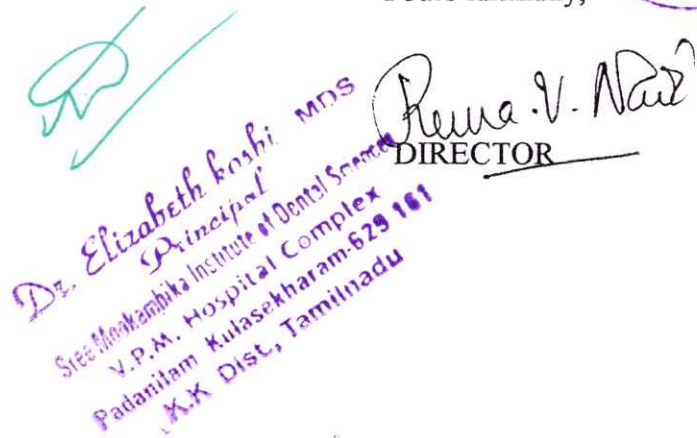 faithfully,
Rema .V. Nair
DIRECTOR
Dr. Elizabeth koshi MDS
Principal
Sree Mookambika Institute of Dental Sciences
V.P.M. Hospital Complex
Padanilam Kulasekharam-629 161
K.K Dist, Tamilnadu